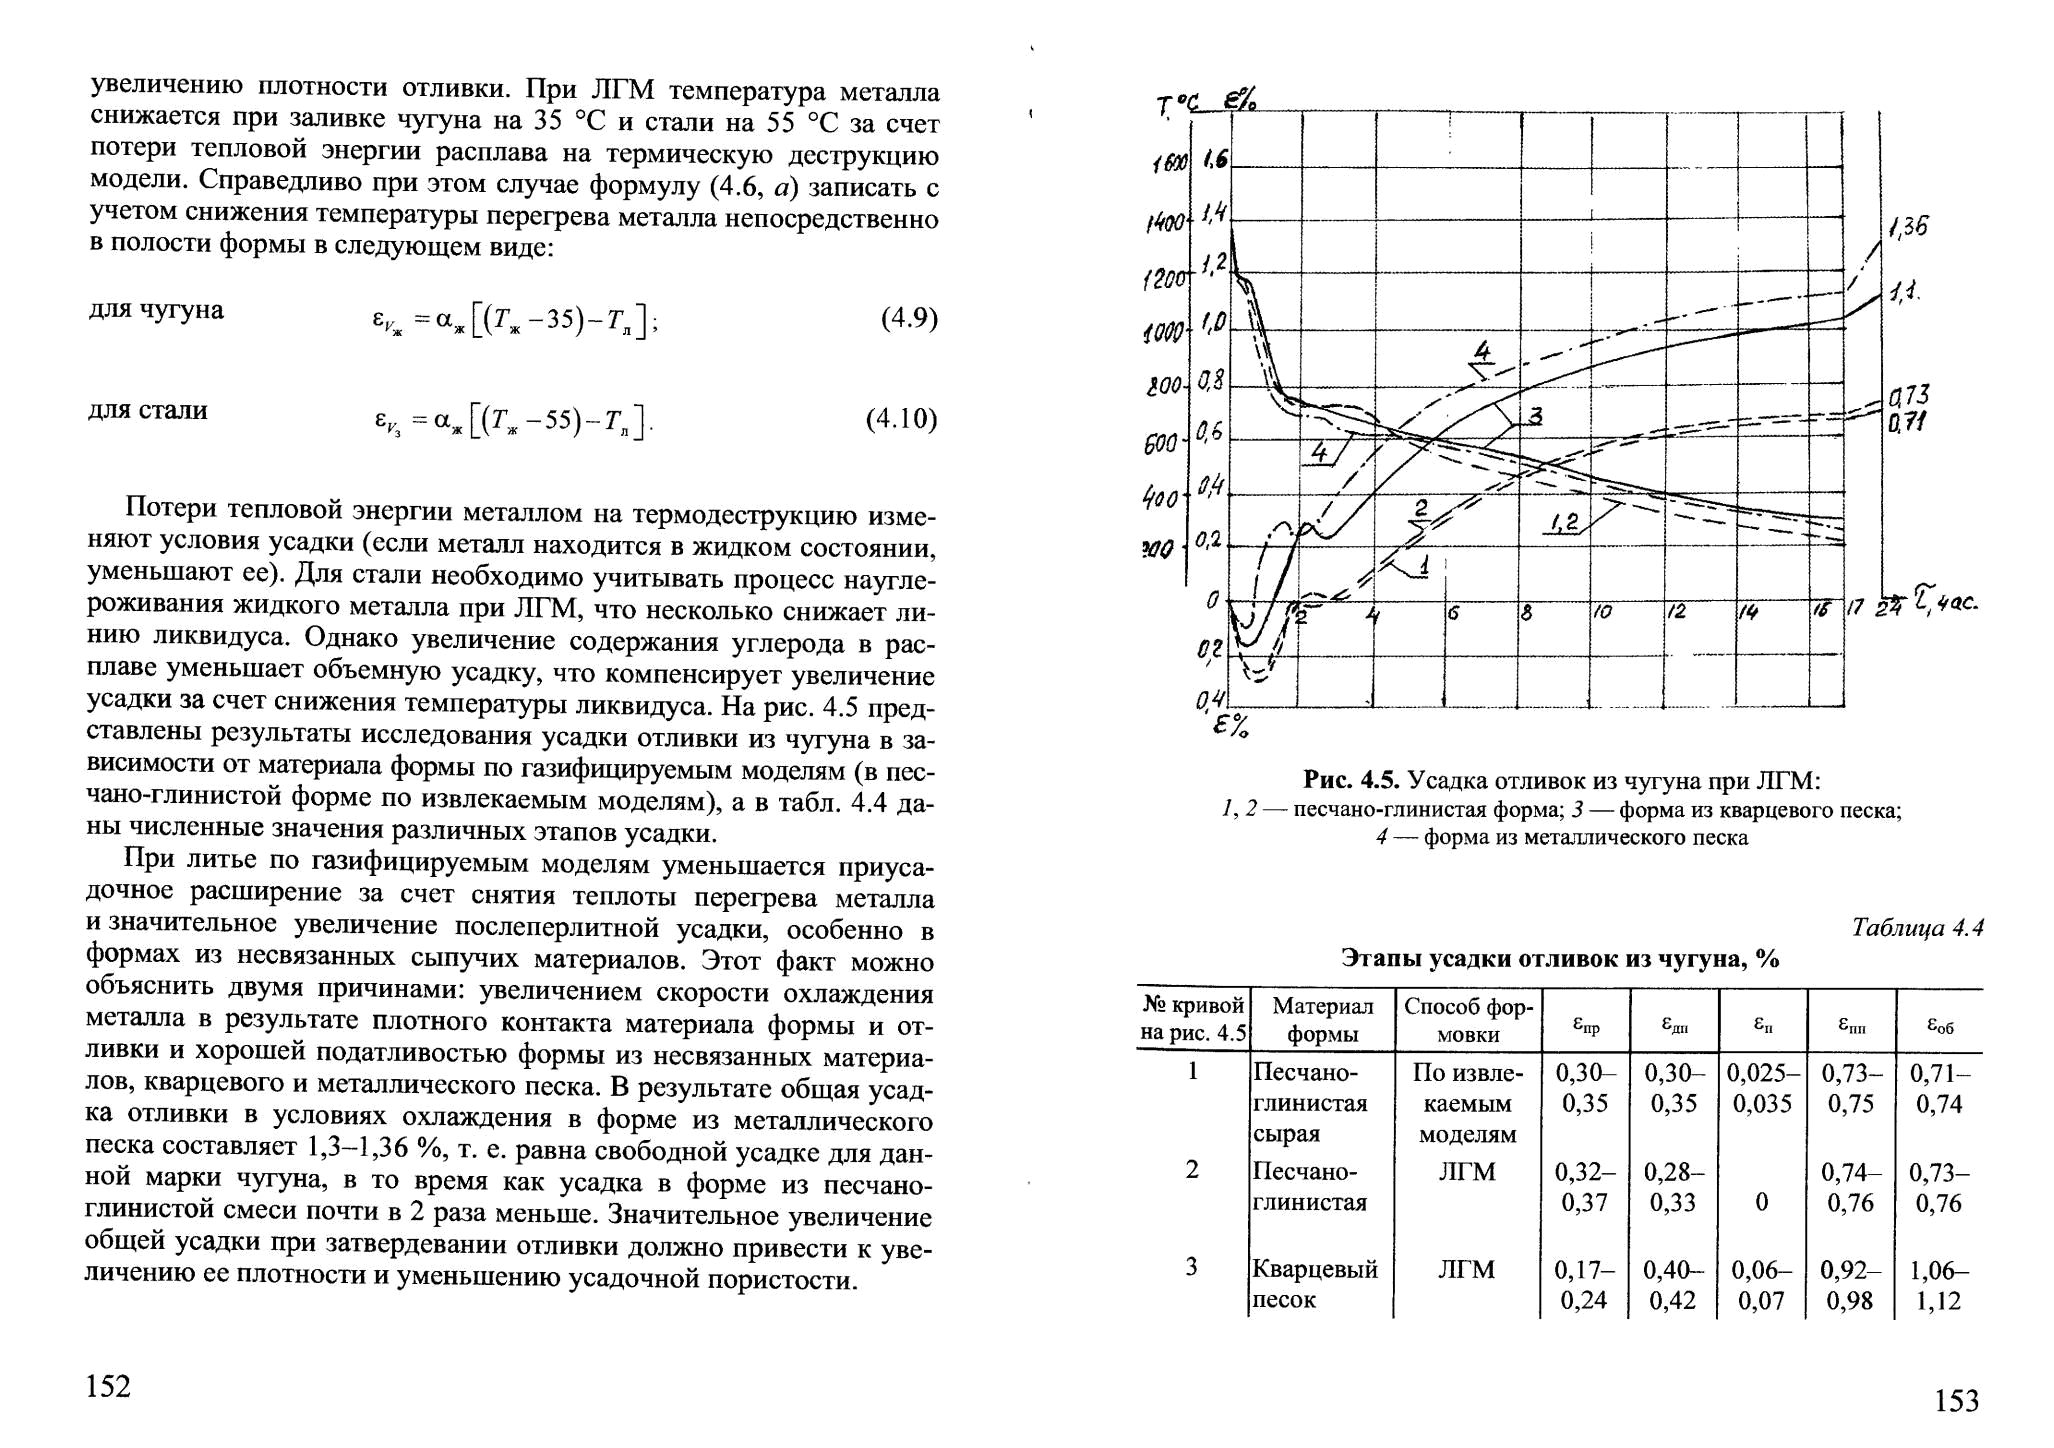 увеличению плотности отливки. При ЛГМ температура металла
снижается при заливке чугуна на 35 °С и стали на 55 °С за счет
потери тепловой энергии расплава на термическую деструкцию
модели. Справедливо при этом случае формулу (4.6, а) записать с
учетом снижения температуры перегрева металла непосредственно
в полости формы в следующем виде:
для чугуна ε_{V_ж} = α_ж [(T_ж − 35) − T_л]; (4.9)
для стали ε_{V_з} = α_ж [(T_ж − 55) − T_л]. (4.10)
Потери тепловой энергии металлом на термодеструкцию изме-
няют условия усадки (если металл находится в жидком состоянии,
уменьшают ее). Для стали необходимо учитывать процесс наугле-
роживания жидкого металла при ЛГМ, что несколько снижает ли-
нию ликвидуса. Однако увеличение содержания углерода в рас-
плаве уменьшает объемную усадку, что компенсирует увеличение
усадки за счет снижения температуры ликвидуса. На рис. 4.5 пред-
ставлены результаты исследования усадки отливки из чугуна в за-
висимости от материала формы по газифицируемым моделям (в пес-
чано-глинистой форме по извлекаемым моделям), а в табл. 4.4 да-
ны численные значения различных этапов усадки.
При литье по газифицируемым моделям уменьшается приуса-
дочное расширение за счет снятия теплоты перегрева металла
и значительное увеличение послеперлитной усадки, особенно в
формах из несвязанных сыпучих материалов. Этот факт можно
объяснить двумя причинами: увеличением скорости охлаждения
металла в результате плотного контакта материала формы и от-
ливки и хорошей податливостью формы из несвязанных материа-
лов, кварцевого и металлического песка. В результате общая усад-
ка отливки в условиях охлаждения в форме из металлического
песка составляет 1,3–1,36 %, т. е. равна свободной усадке для дан-
ной марки чугуна, в то время как усадка в форме из песчано-
глинистой смеси почти в 2 раза меньше. Значительное увеличение
общей усадки при затвердевании отливки должно привести к уве-
личению ее плотности и уменьшению усадочной пористости.
152
T,°C ε%
1600 1,6
1400 1,4
1200 1,2
1000 1,0
800 0,8
600 0,6
400 0,4
200 0,2
0
0,2
0,4
ε%
2 4 6 8 10 12 14 16 17 24 τ, час.
1,36
1,1.
0,73
0,71
4
3
4
2
1,2
1
Рис. 4.5. Усадка отливок из чугуна при ЛГМ:
1, 2 — песчано-глинистая форма; 3 — форма из кварцевого песка;
4 — форма из металлического песка
Таблица 4.4
Этапы усадки отливок из чугуна, %
№ кривой Материал Способ фор- ε_пр ε_дп ε_п ε_пп ε_об
на рис. 4.5 формы мовки
1 Песчано- По извле- 0,30– 0,30– 0,025– 0,73– 0,71–
глинистая каемым 0,35 0,35 0,035 0,75 0,74
сырая моделям
2 Песчано- ЛГМ 0,32– 0,28– 0,74– 0,73–
глинистая 0,37 0,33 0 0,76 0,76
3 Кварцевый ЛГМ 0,17– 0,40– 0,06– 0,92– 1,06–
песок 0,24 0,42 0,07 0,98 1,12
153